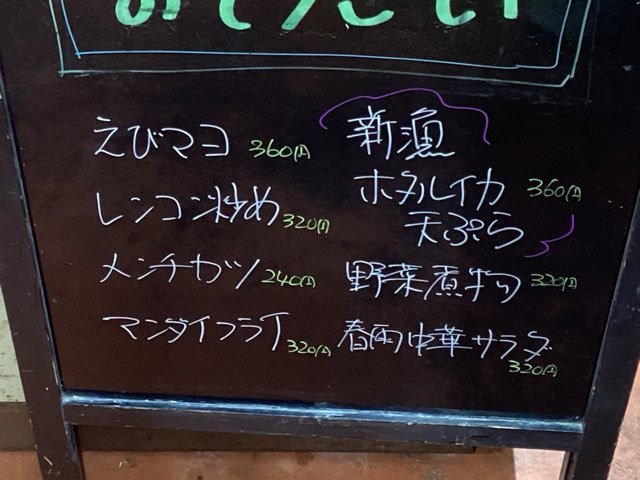 えびマヨ 360円
レンコン炒め 320円
メンチカツ 240円
マンダイフライ 320円
新漁
ホタルイカ 360円
天ぷら
野菜煮物 320円
春雨中華サラダ 320円